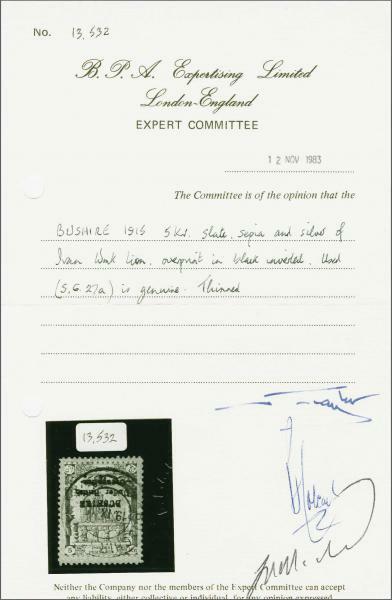 No. 13,532
B. P. A. Expertising Limited
London-England
EXPERT COMMITTEE
12 NOV 1983
The Committee is of the opinion that the
BUSHIRE 1915 5Kr. slate, sepia and silver of
Iran Wmk Lion, overprint in black inverted, Used
(S.G. 27a) is genuine. Thinned
13,532
BUSHIRE
Neither the Company nor the members of the Expert Committee can accept
any liability, either collective or individual, for any opinion expressed